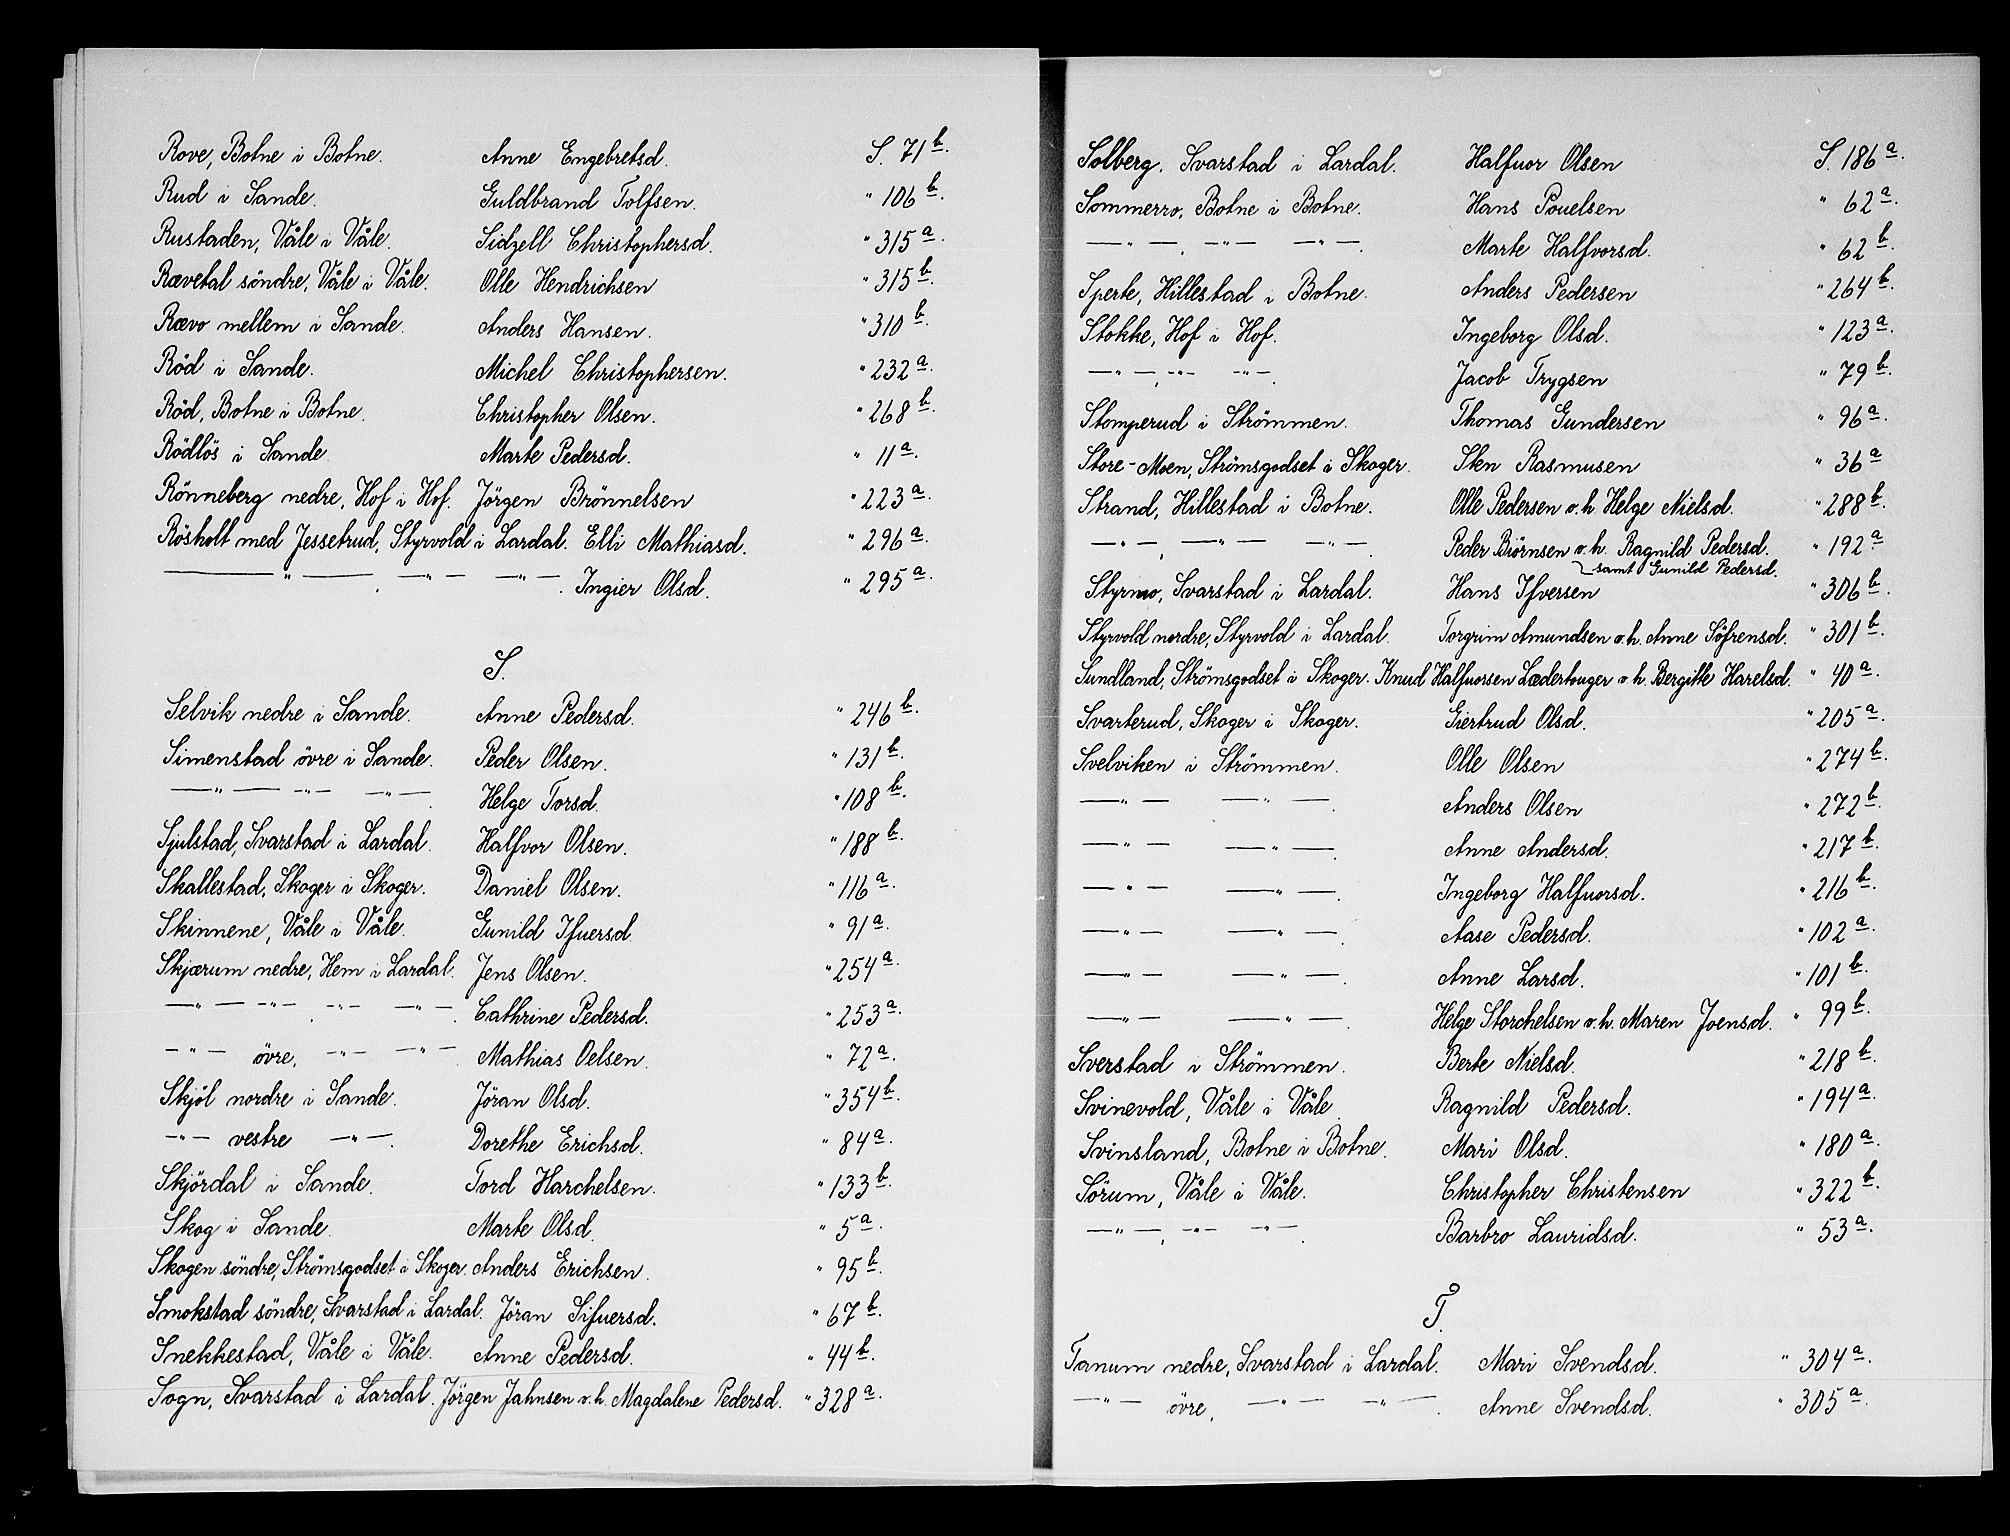 Rove, Botne i Botne. Anne Engebretsd. S. 71 b.
Rud i Sande. Guldbrand Tolfsen. " 106 b.
Rustaden, Våle i Våle. Sidzell Christophersd. " 315 a.
Rævetal söndre, Våle i Våle. Olle Hendrichsen " 315 b.
Rævo mellem i Sande. Anders Hansen. " 310 b.
Röd i Sande. Michel Christophersen. " 232 a.
Röd, Botne i Botne. Christopher Olsen. " 268 b.
Rödlös i Sande Marte Pedersd. " 11 a.
Rönneberg nedre, Hof i Hof. Jörgen Brönnelsen " 223 a.
Rösholt med Jessetrud, Styrvold i Lardal. Elli Mathiasd. " 296 a.
— " — . — " — — " — . Ingier Olsd. " 295 a.
S.
Selvik nedre i Sande. Anne Pedersd. " 246 b.
Simenstad övre i Sande. Peder Olsen. " 131 b.
— " — — " — — " — . Helge Torsd. " 108 b.
Sjulstad, Svarstad i Lardal. Halfvor Olsen. " 188 b.
Skallestad, Skoger i Skoger. Daniel Olsen. " 116 a.
Skinnene, Våle i Våle. Gunild Ifuersd. " 91 a.
Skjærum nedre, Hem i Lardal. Jens Olsen. " 254 a.
— " — — " — . — " — — " — . Cathrine Pedersd. " 253 a.
— " — övre, — " — — " — . Mathias Oelsen. " 72 a.
Skjöl nordre i Sande. Jöran Olsd. " 354 b.
— " — vestre — " — . Dorethe Erichsd. " 84 a.
Skjördal i Sande. Tord Harchelsen. " 133 b.
Skog i Sande. Marte Olsd. " 5 a.
Skogen söndre, Strömsgodset i Skoger. Anders Erichsen. " 95 b.
Smokstad söndre, Svarstad i Lardal. Jöran Sifuersd. " 67 b.
Snekkestad, Våle i Våle. Anne Pedersd. " 44 b.
Sogn, Svarstad i Lardal. Jörgen Jahnsen o. h. Magdalene Pedersd. " 328 a.
Solberg, Svarstad i Lardal. Halfuor Olsen S. 186 a.
Sommerro, Botne i Botne. Hans Pouelsen " 62 a.
— " — . — " — — " — . Marte Halfvorsd. " 62 b.
Sperte, Hillestad i Botne. Anders Pedersen " 264 b.
Stokke, Hof i Hof. Ingeborg Olsd. " 123 a.
— " — , — " — — " — . Jacob Trygsen " 79 b.
Stomperud i Strömmen. Thomas Gundersen " 96 a.
Store-Moen, Strömsgodset i Skoger. Sten Rasmusen " 36 a
Strand, Hillestad i Botne. Olle Pedersen o. h. Helge Nielsd. " 288 b.
— " — , — " — — " — . Peder Biörnsen o. h. Ragnild Pedersd. " 192 a.
samt Gunild Pedersd.
Styrmo, Svarstad i Lardal. Hans Ifversen " 306 b.
Styrvold nordre, Styrvold i Lardal. Torgrim Amundsen o. h. Anne Söfrensd. " 301 b.
Sundland, Strömsgodset i Skoger. Knud Halfuorsen Lædertouger o. h. Bergitte Harelsd. " 40 a.
Svarterud, Skoger i Skoger. Giertrud Olsd. " 205 a.
Svelviken i Strömmen. Olle Olsen " 274 b.
— " — — " — . Anders Olsen " 272 b.
— " — — " — . Anne Andersd. " 217 b.
— " — — " — . Ingeborg Halfuorsd. " 216 b.
— " — — " — . Aase Pedersd. " 102 a.
— " — — " — . Anne Larsd. " 101 b.
— " — — " — . Helge Storchelsen o. h. Maren Joensd. " 99 b.
Sverstad i Strömmen. Berte Nielsd. " 218 b.
Svinevold, Våle i Våle. Ragnild Pedersd. " 194 a.
Svinsland, Botne i Botne. Mari Olsd. " 180 a.
Sörum, Våle i Våle. Christopher Christensen " 322 b.
— " — , — " — — " — . Barbro Lauridsd. " 53 a.
T.
Tanum nedre, Svarstad i Lardal. Mari Svendsd. " 304 a.
— " — övre, — " — — " — . Anne Svendsd. " 305 a.